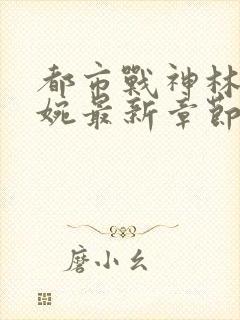 都市戰神林
婉最新章節
磨小幺